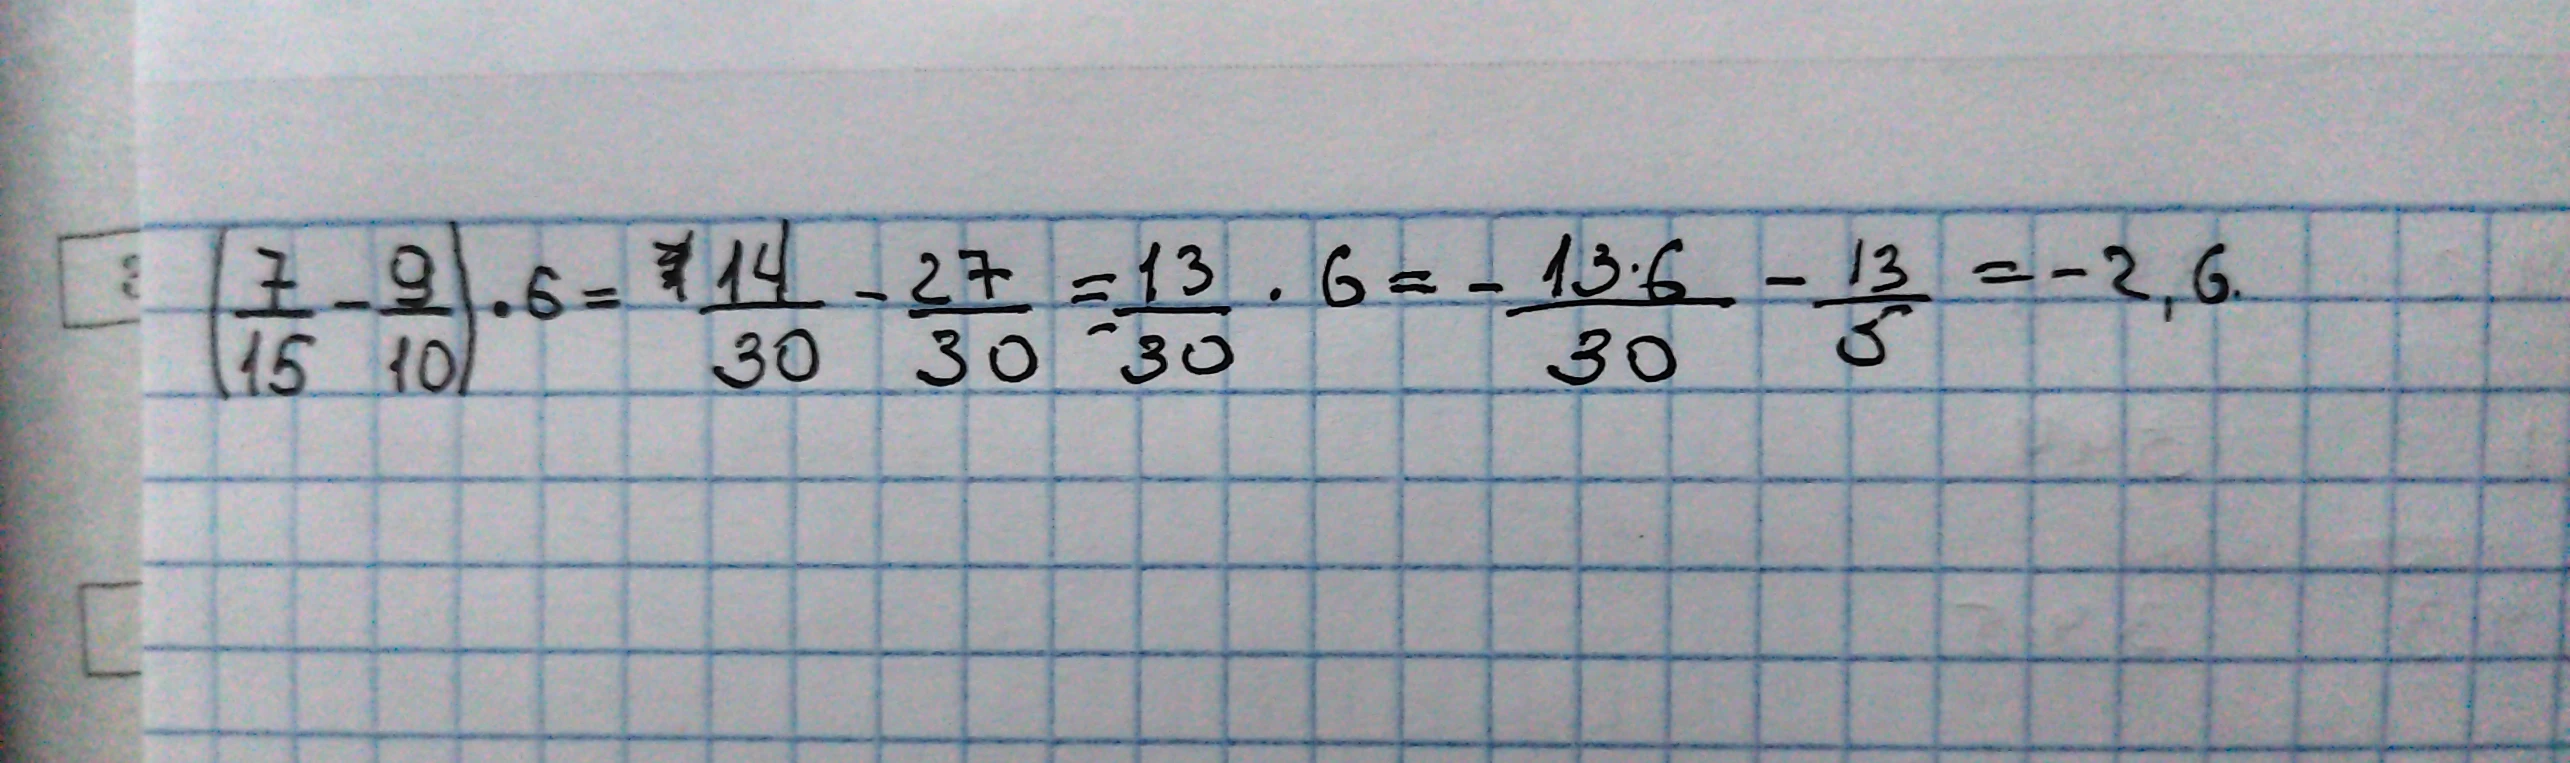 (7/15 - 9/10) · 6 = 14/30 - 27/30 = -13/30 · 6 = - 13·6/30 - 13/5 = -2,6.